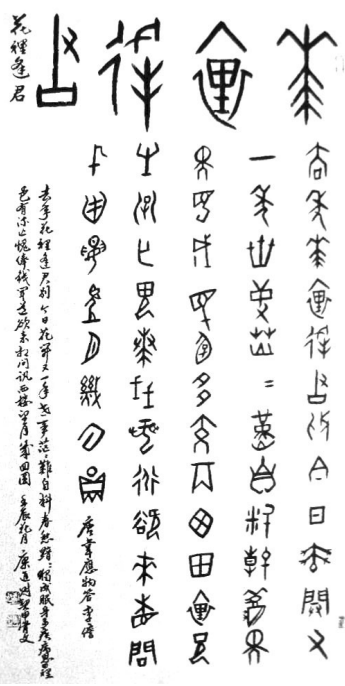 花裡逢君
花裡逢君
去年花裡逢君別今日花開又
一年世事茫〻難自料春愁黯
獨成眠身多疾病田裡邑
有流亡愧俸錢聞道欲來相問
訊西樓望月幾回圓
唐韋應物答李儋
去年花裡逢君別今日花開又一年世事茫〻難自料春愁黯〻獨成眠身多疾病思田裡
邑有流亡愧俸錢聞道欲來相問訊西樓望月幾回圓 壬辰花月 甲骨文